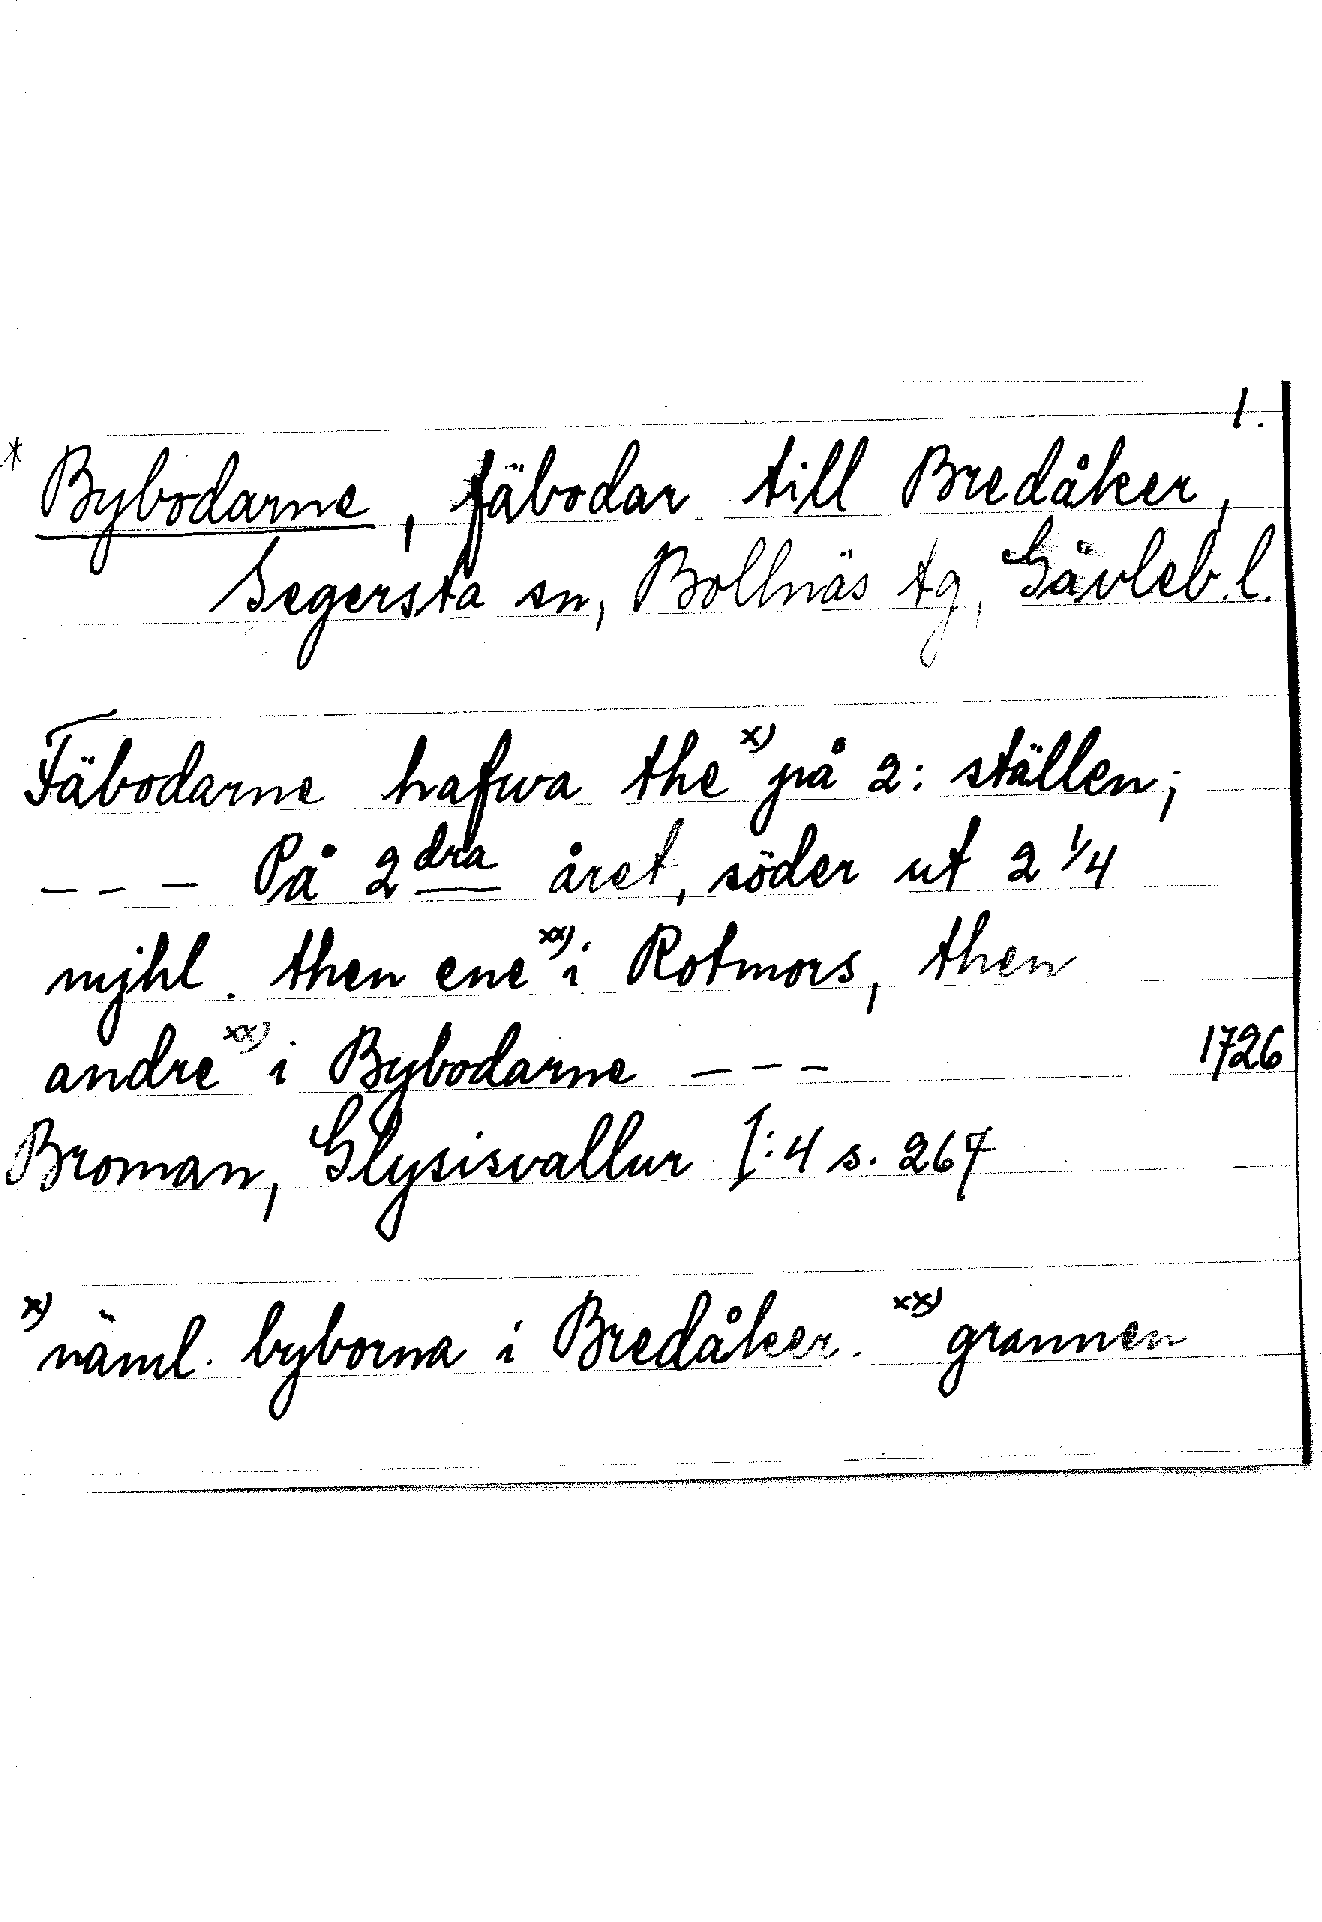 1.
* Bybodarne, fäbodar till Bredåker,
Segersta sn, Bollnäs tg, Gävleb.l.
Fäbodarne hafwa the x) på 2: ställen;
--- På 2dra året, söder ut 2 1/4
mjhl. then ene xx) i Rotmors, then
andre xx) i Bybodarne --- 1726
Broman, Glysisvallur I:4 s. 267
x) näml. byborna i Bredåker. xx) grannen